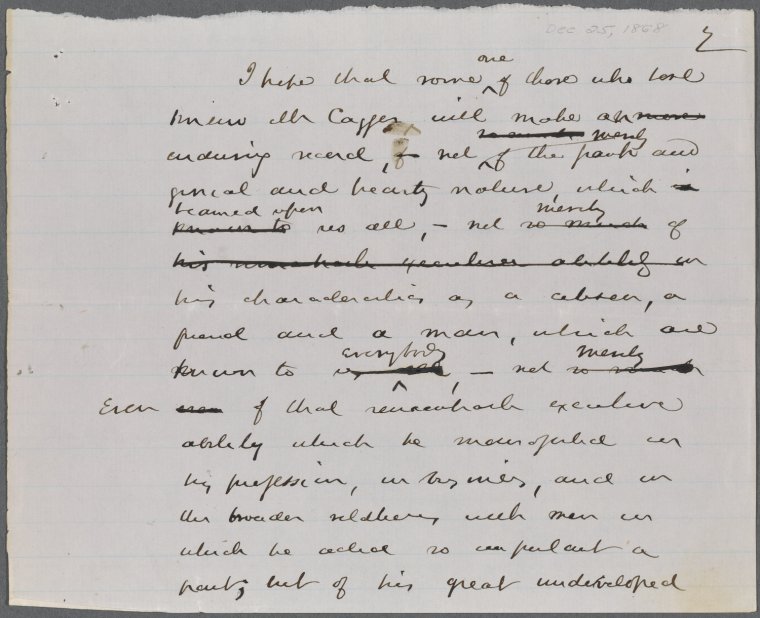 Dec 25, 1868
2
I hope that some one of those who best
knew Mr Cagger will make an more
enduring record, of not so much merely of the frank and
genial and hearty nature, which is
beamed upon known to us all, — not merely so much of
his remarkable executive ability in
his characteristics as a citizen, a
friend and a man, which are
known to us all everybody, — not merely so much
Even of that remarkable executive
ability which he manifested in
his profession, in business, and in
the broader relations with men in
which he acted so important a
part; but of his great undeveloped